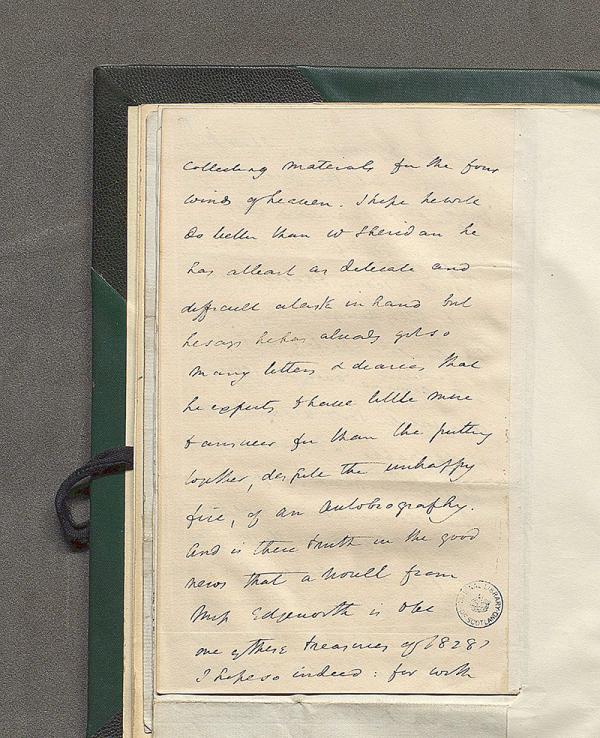 collecting materials for the four
winds of heaven. I hope he will
do better than w Sheridan he
has atleast as delicate and
difficult atask in hand but
he says he has already got so
many letters & dearies that
he expects to have little more
to answer for than the putting
together, despite the unhappy
fire, of an Autobiography.
And is there truth in the good
news that a novell from
Miss Edgeworth is to be
one of these treasures of 1828?
I hope so indeed: for with
LIBRARY
OF SCOTLAND